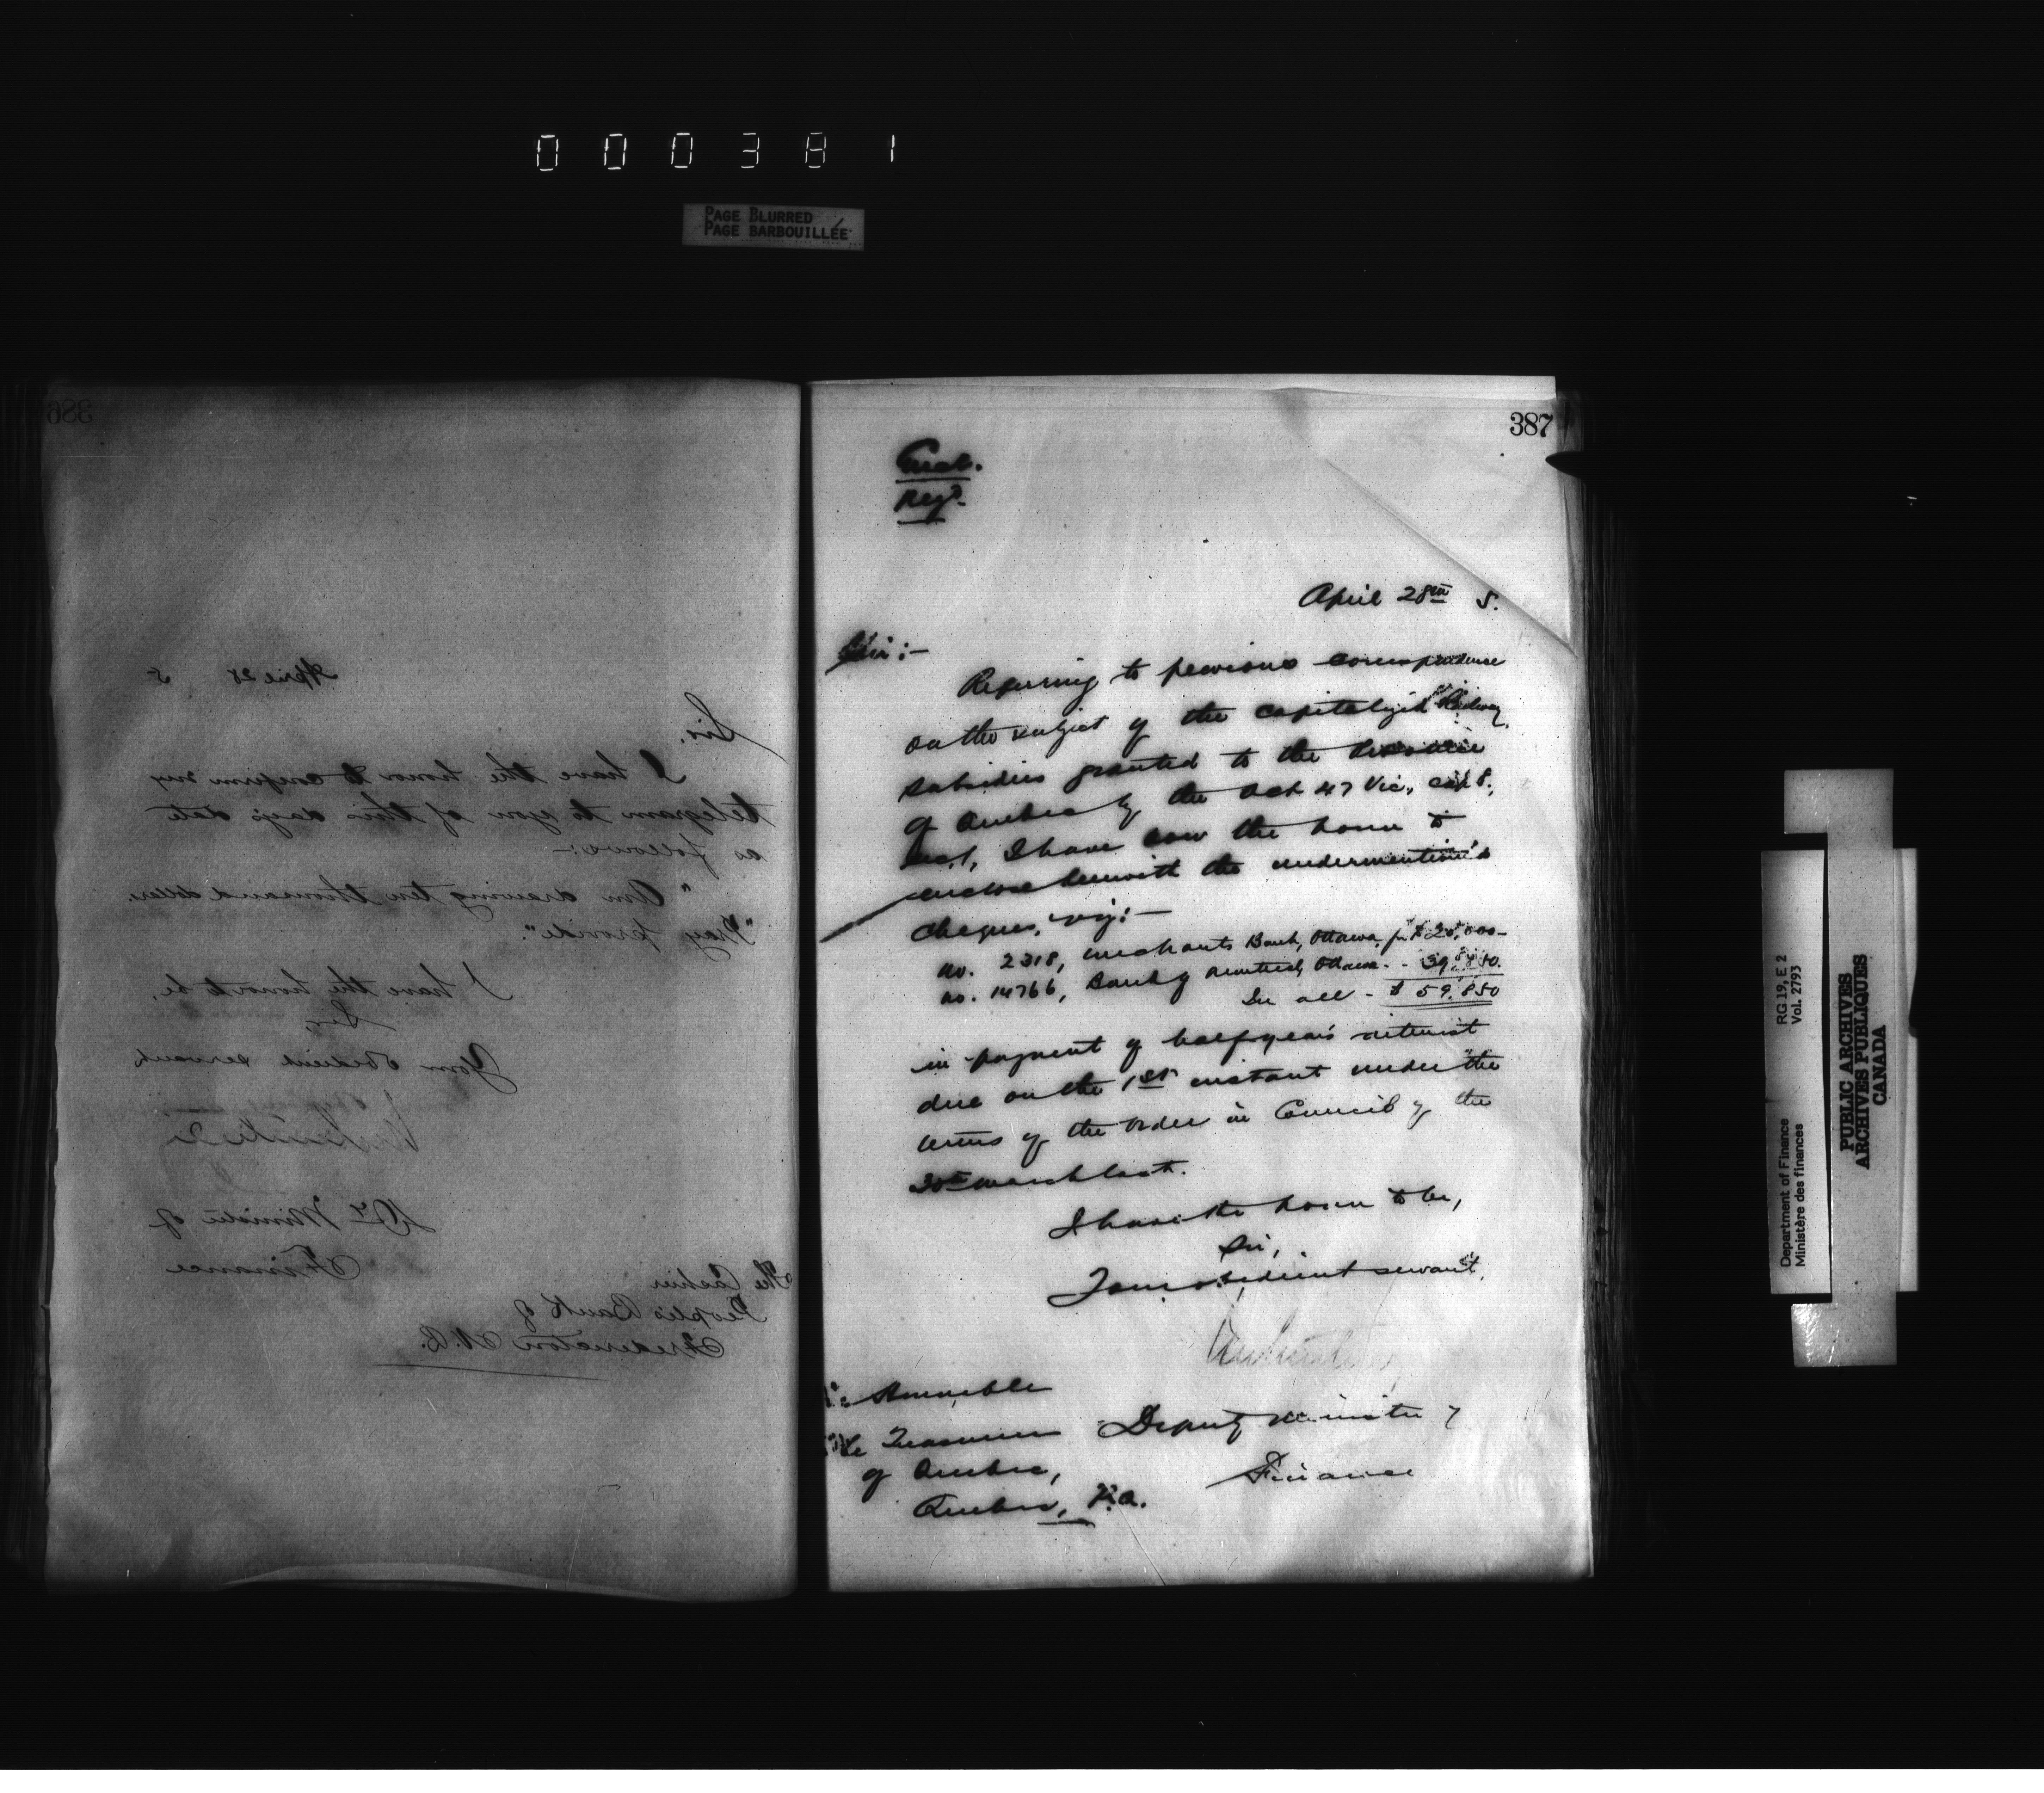 000381
PAGE BLURRED
PAGE BARBOUILLÉE
386
April 28 5
Sir,
I have the honor to confirm my
telegram to you of this day's date
as follows:-
"Am drawing ten thousand dollars
"Pray provide".
I have the honor to be,
Sir,
Your obedient servant
Dy Minister of
Finance
The Cashier
People's Bank of
Fredericton N.B.
387
Encl.
Regd.
April 28th 5.
Sir:-
Referring to previous correspondence
on the subject of the capitalized Railway
subsidies granted to the Province
of Quebec by the Act 47 Vic, cap 8,
I have now the honor to
enclose herewith the undermentioned
cheques, viz:-
No. 2318, Merchants Bank, Ottawa for $20,000-
No. 14766, Bank of Montreal, Ottawa - - 39,850.
In all - $59,850
in payment of half-year's interest
due on the 1st instant under the
terms of the Order in Council of the
30th March last.
I have the honor to be,
Sir,
Your obedient servant,
Deputy Minister of
Finance
Honorable
The Treasurer
of Quebec,
Quebec, P.Q.
RG 19, E 2
Vol. 2793
Department of Finance
Ministère des finances
PUBLIC ARCHIVES
ARCHIVES PUBLIQUES
CANADA